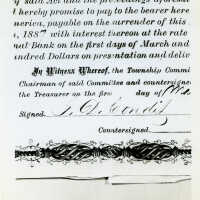 said Act and the proceedings
hereby promise to pay to the bearer here
merica, payable on the surrender of this
, 188 with interest thereon at the rate
nal Bank on the first days of March and
undred Dollars on presentation and deliv
In Witness Whereof, the Township Commi
Chairman of said Committee and countersigne
the Treasurer on the first day of
Signed
Countersigned